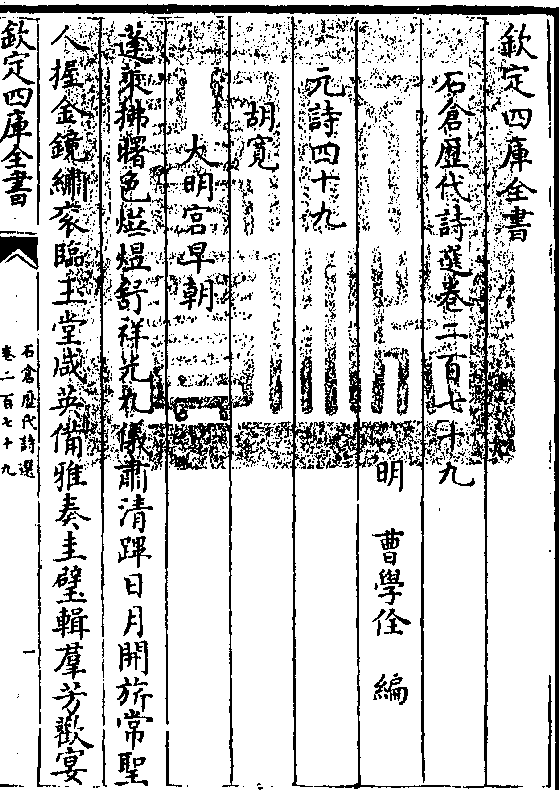 欽定四庫全書
石倉歴代詩選卷二百七十九
明 曹學佺 編
元詩四十九
胡寛
大明宮早朝
蓬萊拂曙色熀煜舒祥光九儀肅清蹕日月開旂常聖
人握金鏡繡衮臨玉堂咸英備雅奏圭璧輯羣芳歡宴
欽定四庫全書
石倉歴代詩選
卷二百七十九
一